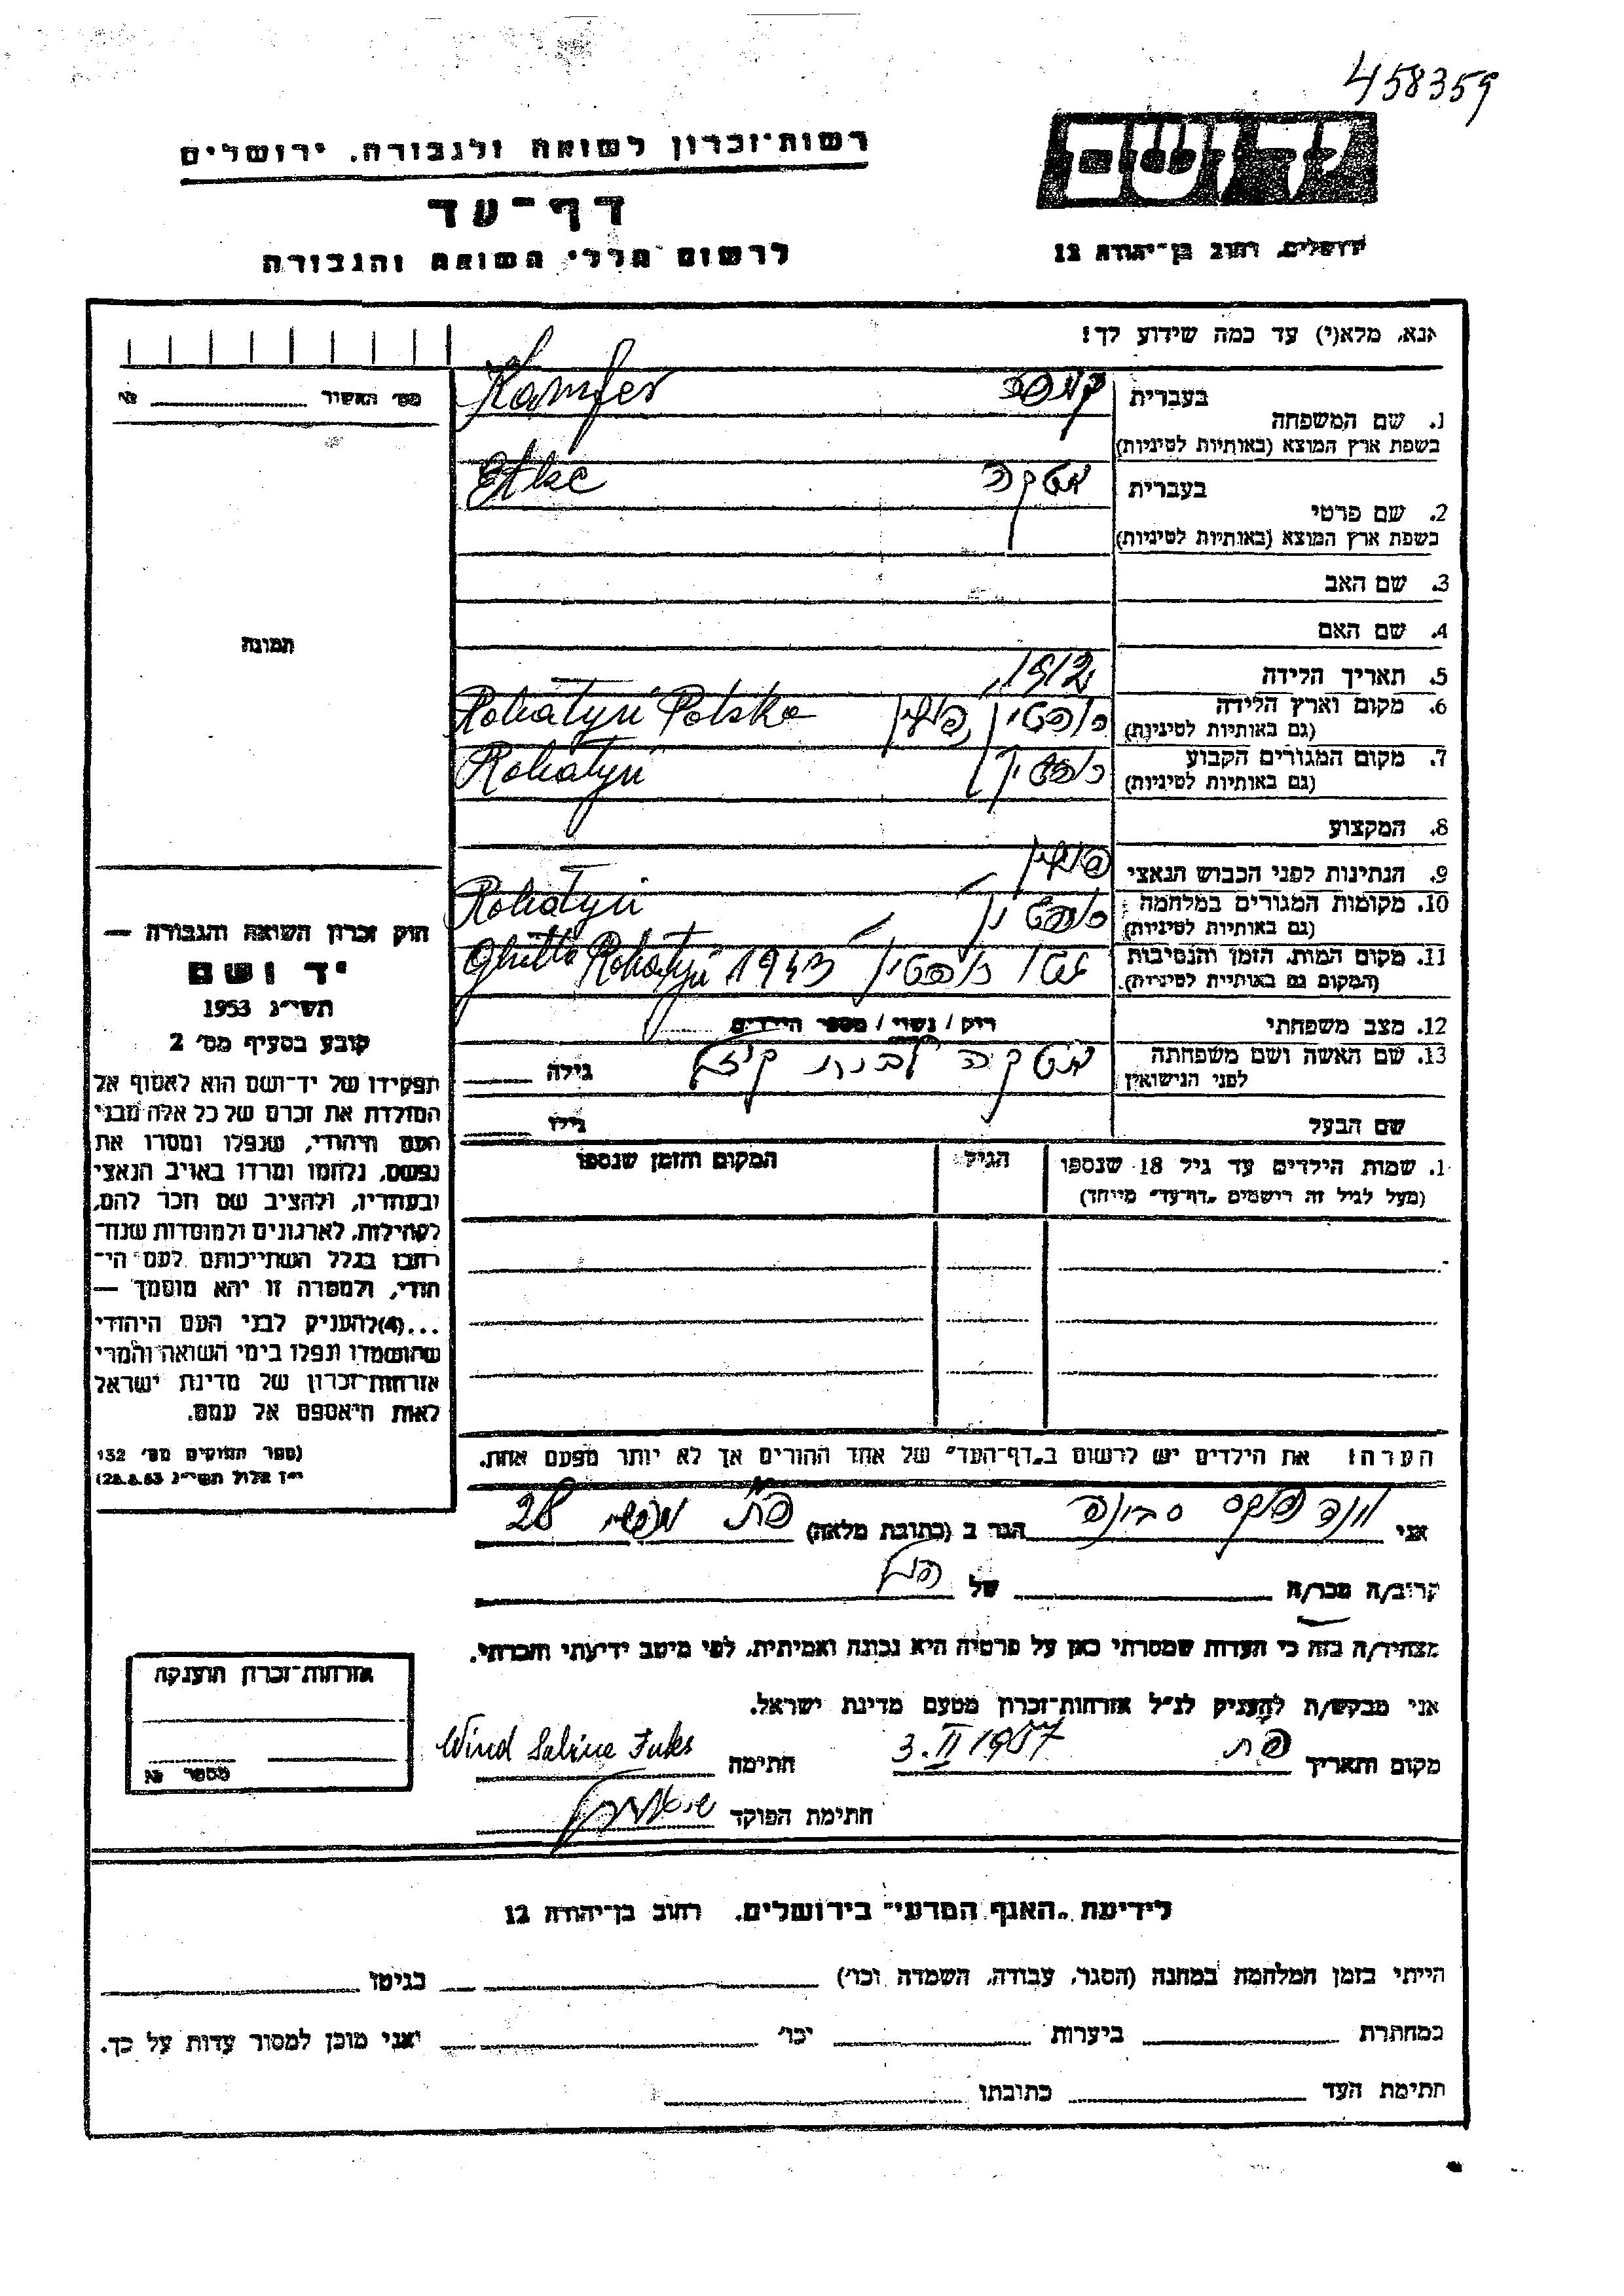 458359
יד ושם
רשות־זכרון לשואה ולגבורה, ירושלים
דף־עד
ירושלים, רחוב בן־יהודה 12
לרשום חללי השואה והגבורה
אנא, מלא(י) עד כמה שידוע לך!
מס' האשור
בעברית
Kamfer
1. שם המשפחה
בשפת ארץ המוצא (באותיות לטיניות)
בעברית אטקה Etke
2. שם פרטי
בשפת ארץ המוצא (באותיות לטיניות)
3. שם האב
4. שם האם
תמונה
5. תאריך הלידה 1912
6. מקום וארץ הלידה רוהטין, פולין Rohatyń Polska
(גם באותיות לטיניות)
7. מקום המגורים הקבוע רוהטין Rohatyń
(גם באותיות לטיניות)
8. המקצוע
9. הנתינות לפני הכבוש הנאצי פולין
10. מקומות המגורים במלחמה רוהטין Rohatyń
(גם באותיות לטיניות)
11. מקום המות, הזמן והנסיבות גטו רוהטין Ghitto Rohatyń 1943
(המקום גם באותיות לטיניות)
12. מצב משפחתי רוק / נשוי / מספר הילדים
13. שם האשה ושם משפחתה אטקה לבית גילה
לפני הנישואין
שם הבעל גילו
חוק זכרון השואה והגבורה —
יד ושם
תשי"ג 1953
קובע בסעיף מס' 2
תפקידו של יד־ושם הוא לאסוף אל
המולדת את זכרם של כל אלה מבני
העם היהודי, שנפלו ומסרו את
נפשם, נלחמו ומרדו באויב הנאצי
ובעוזריו, ולהציב שם וזכר להם,
לקהילות, לארגונים ולמוסדות שנח־
רבו בגלל השתייכותם לעם הי־
הודי, ולמטרה זו יהא מוסמך —
...(4) להעניק לבני העם היהודי
שהושמדו ונפלו בימי השואה והמרי
אזרחות־זכרון של מדינת ישראל
לאות היאספם אל עמם.
(ספר החוקים מס' 132
י"ז אלול תשי"ג 28.8.53)
1. שמות הילדים עד גיל 18 שנספו הגיל המקום והזמן שנספו
(מעל לגיל זה רישמים "דף־עד" מיוחד)
הערה! את הילדים יש לרשום ב"דף־העד" של אחד ההורים אך לא יותר מפעם אחת.
אני וינד פוקס סבינה הגר ב (כתובת מלאה) 28
קרוב/ה מכר/ה של
מצהיר/ה בזה כי העדות שמסרתי כאן על פרטיה היא נכונה ואמיתית, לפי מיטב ידיעתי והכרתי.
אני מבקש/ת להעניק לנ"ל אזרחות־זכרון מטעם מדינת ישראל.
מקום ותאריך 3.II 1957 חתימה Wind Sabine Fuks
חתימת הפוקד
אזרחות־זכרון הוענקה
מספר
לידיעת "האגף המדעי" בירושלים, רחוב בן־יהודה 12
הייתי בזמן המלחמה במחנה (הסגר, עבודה, השמדה וכו') בגיטו
במחתרת ביערות וכו' ואני מוכן למסור עדות על כך.
חתימת העד כתובתו